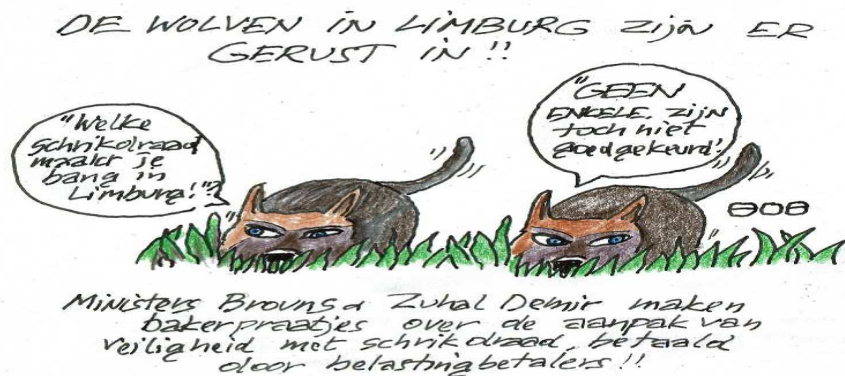 DE WOLVEN IN LIMBURG ZIJN ER
GERUST IN !!
"Welke
schrikdraad
maakt je
bang in
Limburg!"?
"GEEN
ENKELE, ZIJN
toch niet
goedgekeurd"!
BOB
Ministers Brouns & Zuhal Demir maken
bakerpraatjes over de aanpak van
veiligheid met schrikdraad, betaald
door belastingbetalers !!